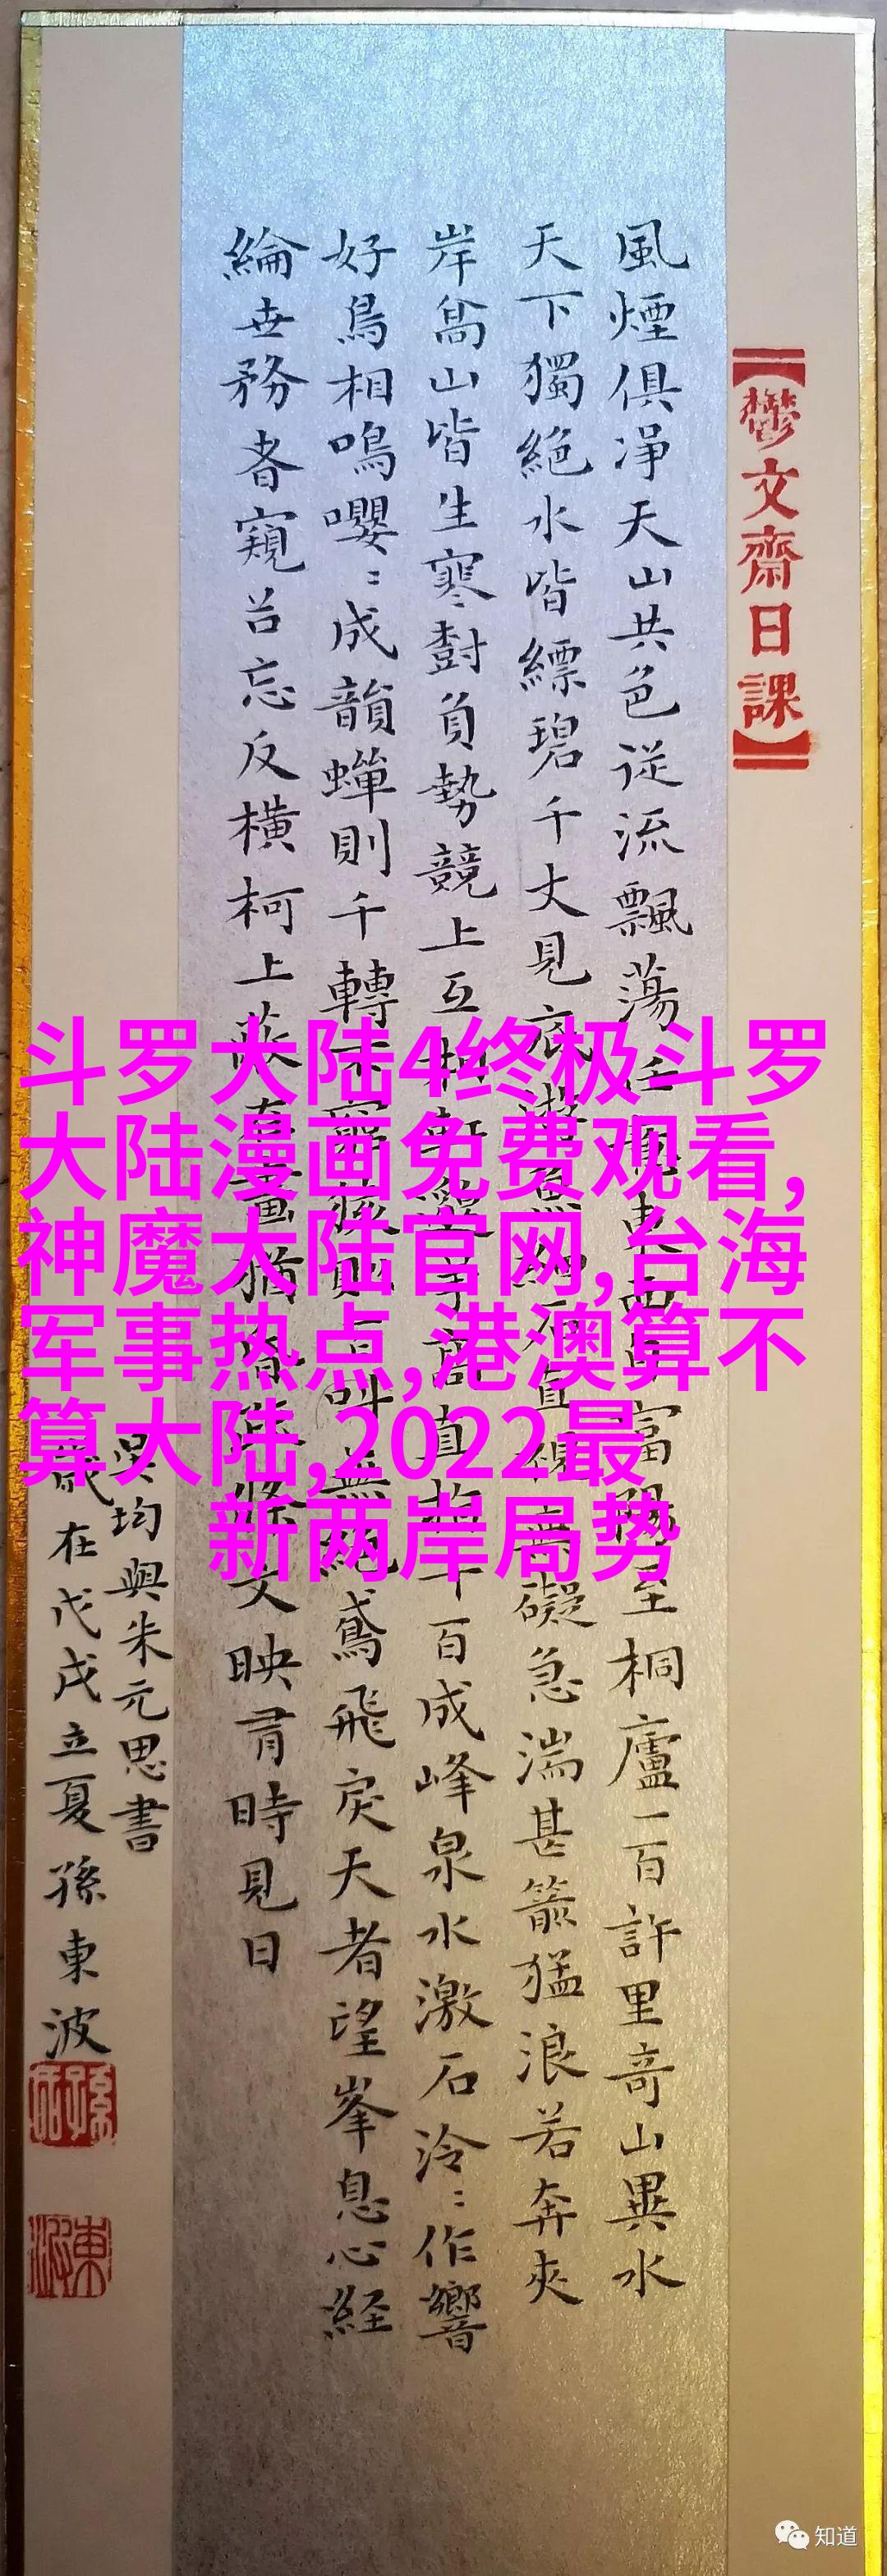 【鬱文齋日課】
風煙俱淨天山共色從流飄蕩任意東西自富陽至桐廬一百許里奇山異水
天下獨絕水皆縹碧千丈見底游魚細石直視無礙急湍甚箭猛浪若奔夾
岸高山皆生寒樹負勢競上互相軒邈爭高直指千百成峰泉水激石泠:作響
好鳥相鳴嚶:成韻蟬則千轉不窮猨則百叫無絕鳶飛戾天者望峯息心経
綸世務者窺谷忘反橫柯上蔽在晝猶昏疏條交映有時見日
吳均與朱元思書
歲在戊戌立夏孫東波
斗罗大陆4终极斗罗
大陆漫画免费观看,
神魔大陆官网,台海
军事热点,港澳算不
算大陆,2022最
新两岸局势
知道